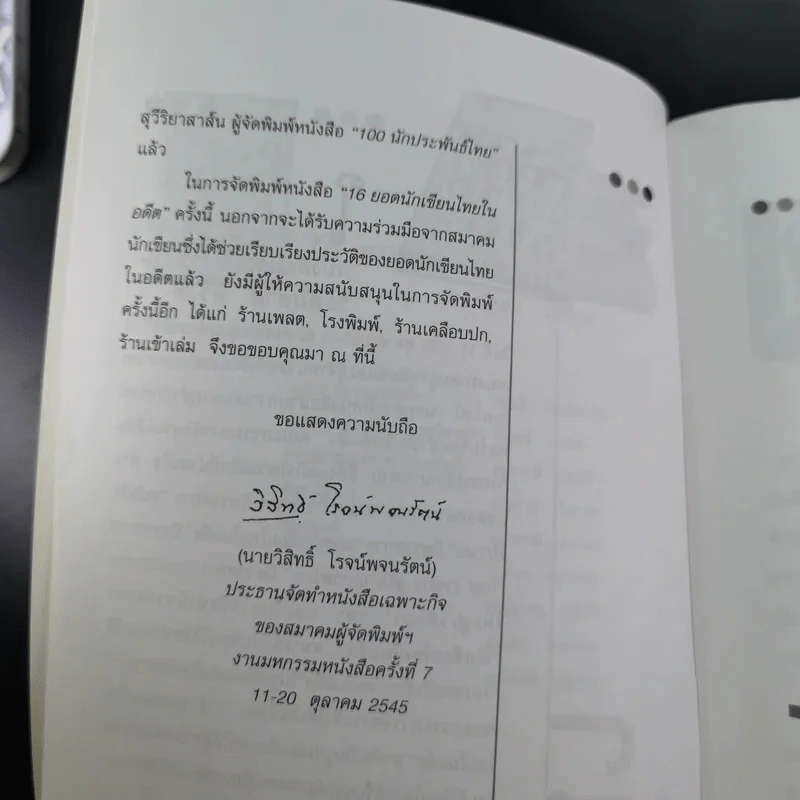 สุวีริยาสาส์น ผู้จัดพิมพ์หนังสือ “100 นักประพันธ์ไทย”
แล้ว
ในการจัดพิมพ์หนังสือ “16 ยอดนักเขียนไทยใน
อดีต” ครั้งนี้ นอกจากจะได้รับความร่วมมือจากสมาคม
นักเขียนซึ่งได้ช่วยเรียบเรียงประวัติของยอดนักเขียนไทย
ในอดีตแล้ว ยังมีผู้ให้ความสนับสนุนในการจัดพิมพ์
ครั้งนี้อีก ได้แก่ ร้านเพลต, โรงพิมพ์, ร้านเคลือบปก,
ร้านเข้าเล่ม จึงขอขอบคุณมา ณ ที่นี้
ขอแสดงความนับถือ
วิสิทธิ์ โรจน์พจนรัตน์
(นายวิสิทธิ์ โรจน์พจนรัตน์)
ประธานจัดทำหนังสือเฉพาะกิจ
ของสมาคมผู้จัดพิมพ์ฯ
งานมหกรรมหนังสือครั้งที่ 7
11-20 ตุลาคม 2545